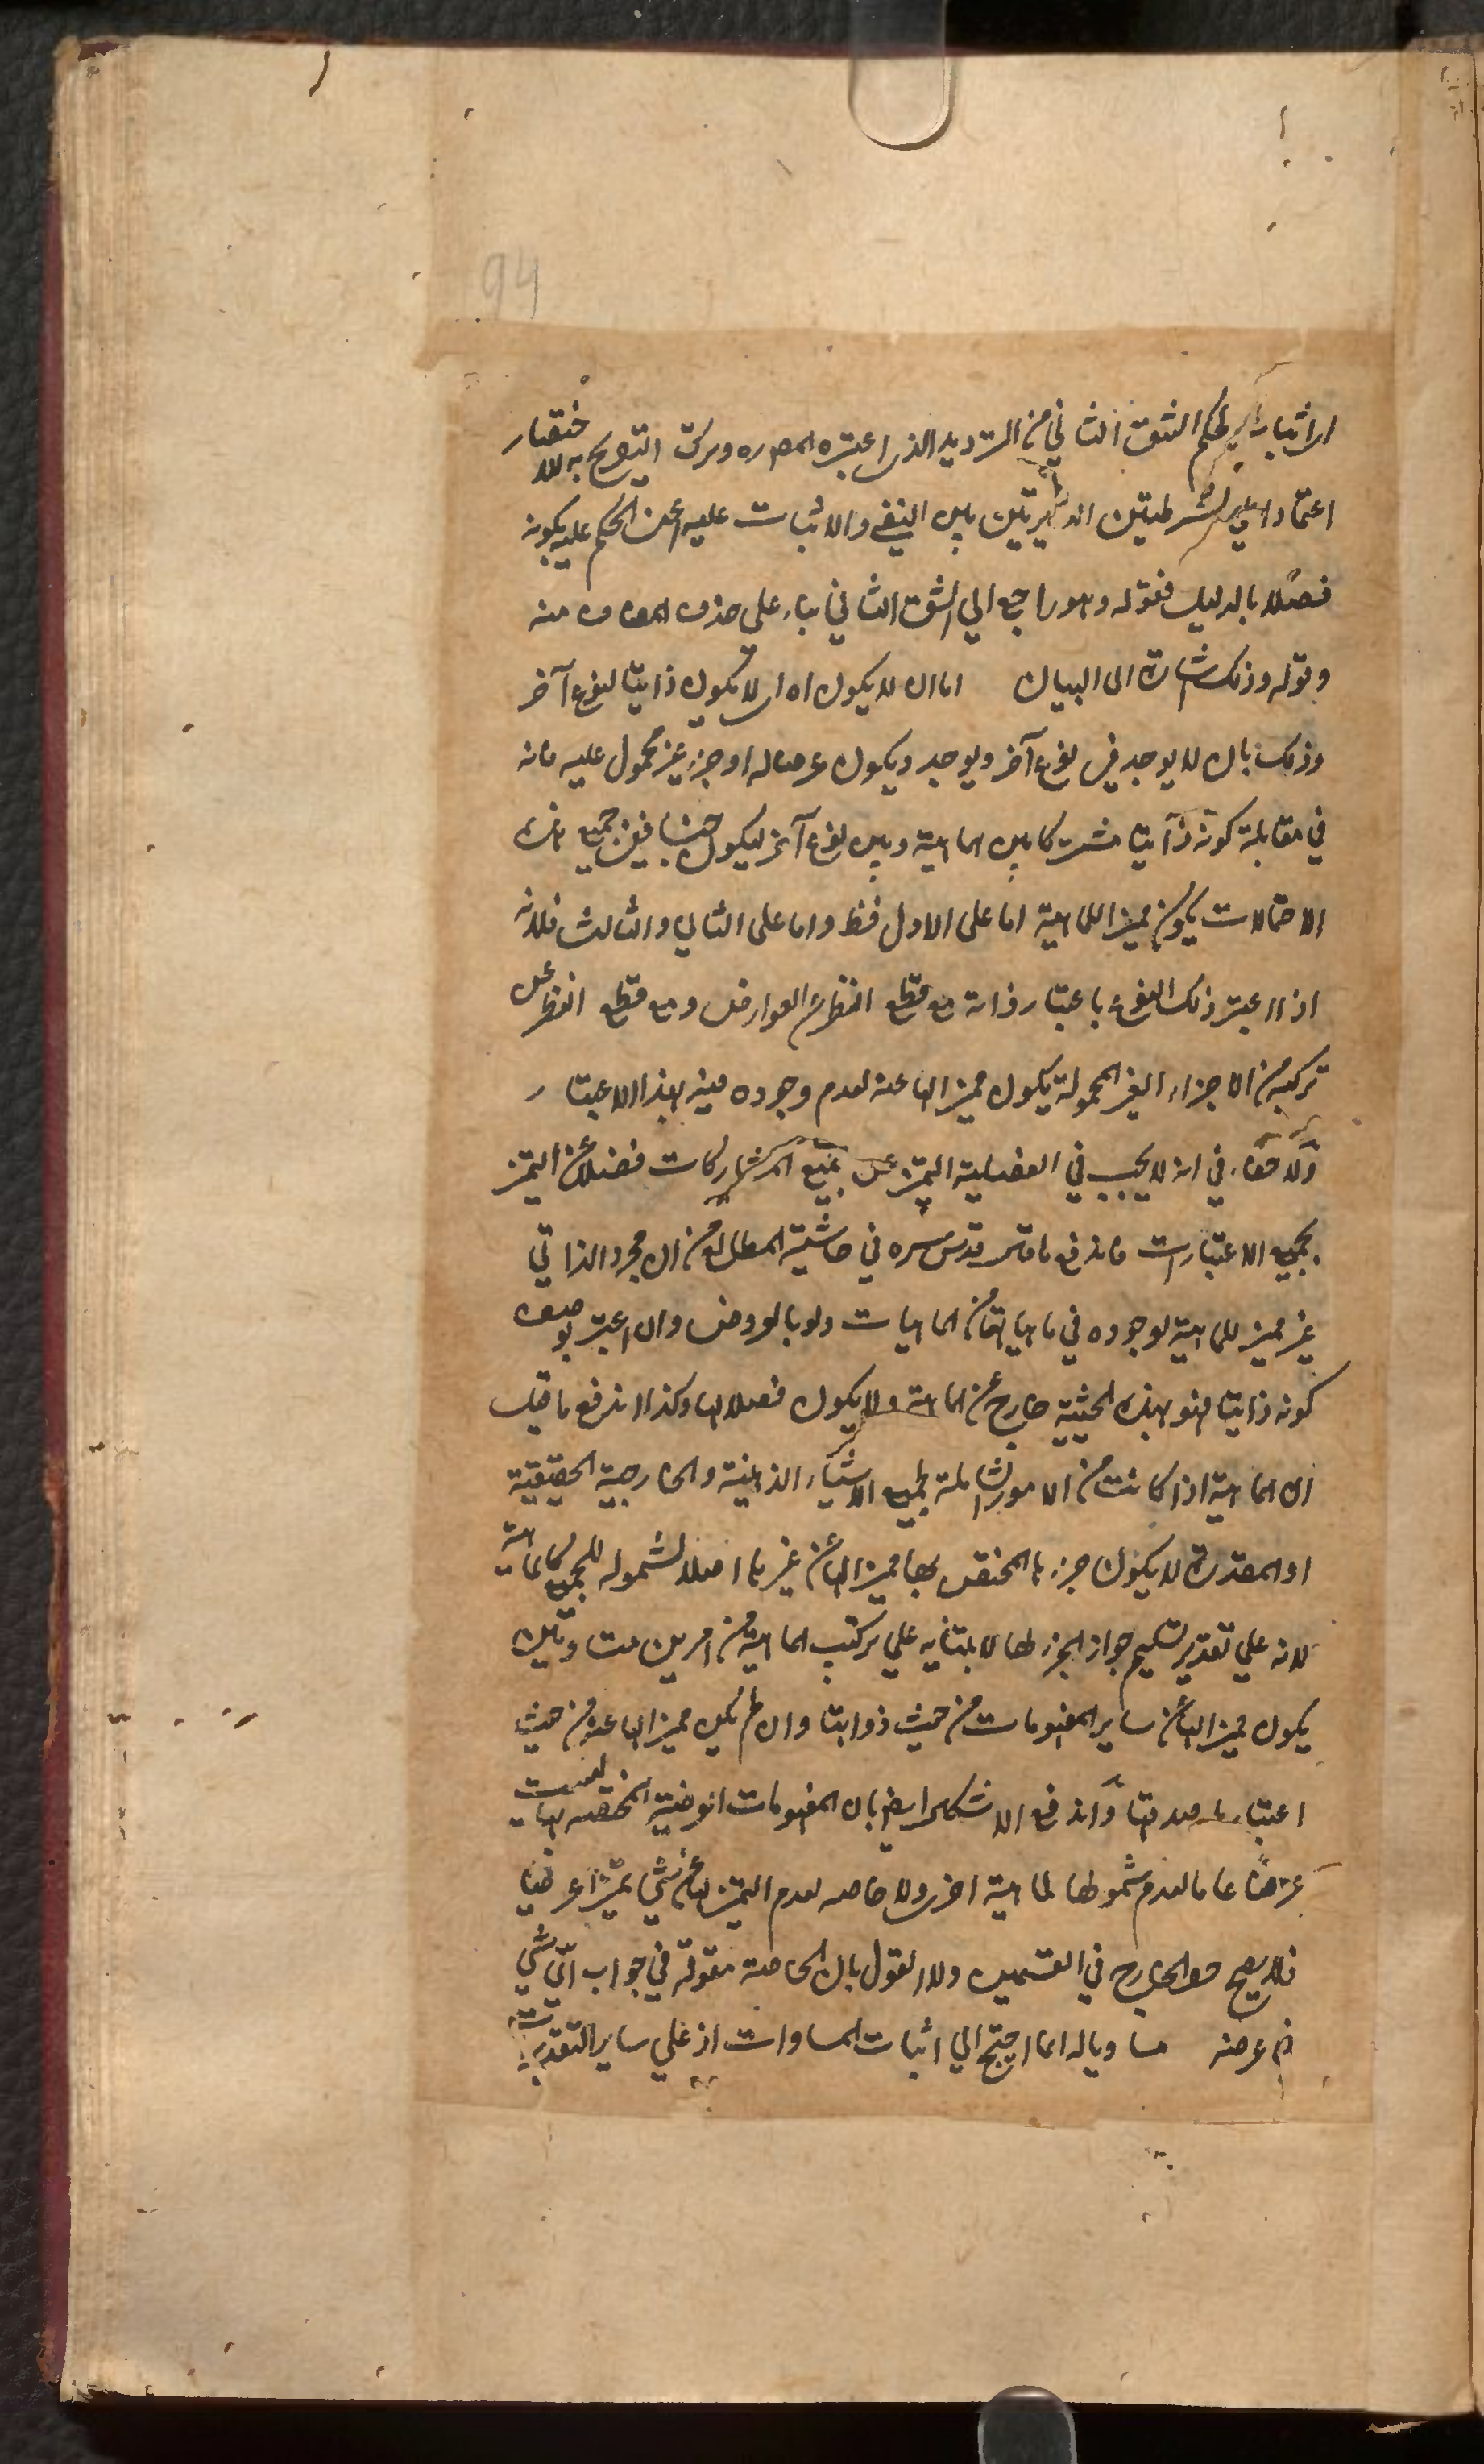 94
الشق الثاني من الترديد الذي اعتبره المص ره وترك التصريح به للاختصار
اعتمادا على الشرطيتين الدائرتين بين النفي والاثبات عليه اعني الحكم عليه بكونه
فصلا بالدليل فقوله وهو راجع الي الشق الثاني بناء علي حذف المضاف منه
وقوله وذلك اشارة الى البيان اما ان لا يكون اه اي لا يكون ذاتيا لنوع آخر
وذلك بان لا يوجد في نوع آخر ويوجد ويكون عرضا له او جزء غير محمول عليه فانه
في مقابلة كونه ذاتيا مشتركا بين الماهية وبين نوع آخر ليكون جنسا ففي جميع هذه
الاحتمالات يكون مميزا للماهية اما على الاول فظ واما على الثاني والثالث فلانه
اذا اعتبر ذلك النوع باعتبار ذاته مع قطع النظر عن العوارض ومع قطع النظر عن
تركبه من الاجزاء الغير المحمولة يكون مميزا لها عنه لعدم وجوده فيه بهذا الاعتبار
ولا خفاء في انه لا يجب في الفصلية التميز عن جميع المشاركات فضلا عن التميز
بجميع الاعتبارات فاندفع ما قدس سره في حاشية المطالع من ان مجرد الذاتي
غير مميز للماهية لوجوده في ماهيات ما من الماهيات ولو بالعروض وان اعتبر بوصف
كونه ذاتيا فهو بهذه الحيثية خارج عن الماهية ولا يكون فصلا لها وكذا اندفع ما قيل
ان الماهية اذا كانت من الامور الشاملة لجميع الاشياء الذهنية والخارجية الحقيقية
او المقدرة لا يكون جزءها المختص بها مميزا لها عن غيرها اصلا لشموله للجميع كالماهية
لانه علي تقدير تسليم جواز الجزء لها لابتنائه علي تركب الماهية من امرين متساويين
يكون مميزا لها عن ساير المفهومات من حيث ذواتها وان لم يكن مميزا لها عنه من حيث
اعتبار صدقها واندفع الاشكال ايضا بان المفهومات العرضية المختصة بها ليست
عرضا عاما لعدم شمولها لماهية اخرى ولا خاصه لعدم التميز لها عن شي تميزا عرضيا
فلا يصح حصر الخارج في القسمين ولا القول بان الخاصة مقولة في جواب اي شي
في عرضه مساويا له انما احتج الي اثبات المساوات اذ علي ساير التقديرات